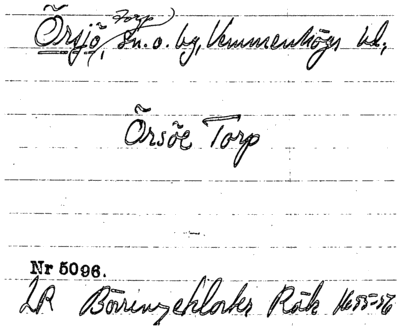 Torp
Örsjö, sn. o. by, Vemmenhögs hd,
Örsöe Torp
Nr 5096.
LR Börringekloster Räk 1655-56